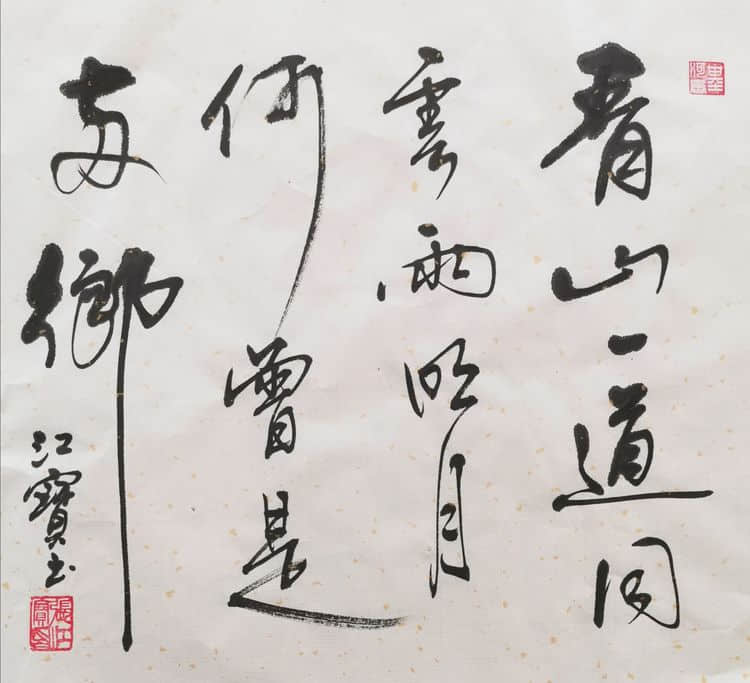 青山一道同
雲雨明月
何曾是
两鄉
江寶书